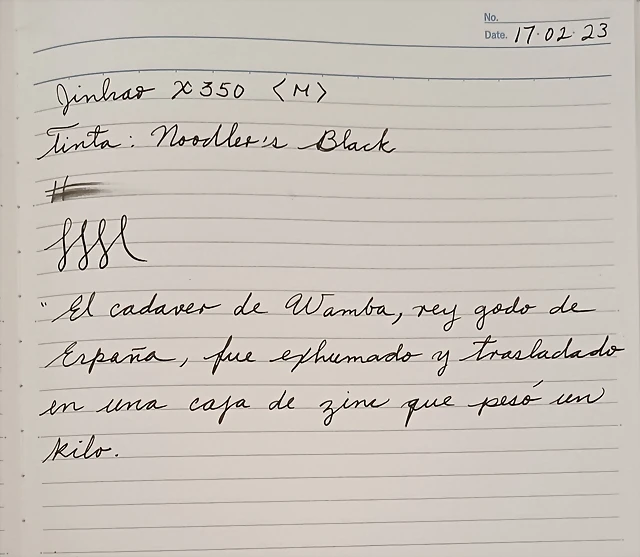 No.
Date. 17·02·23
Jinhao X350 <M>
Tinta: Noodler's Black
#
"El cadaver de Wamba, rey godo de
España, fue exhumado y trasladado
en una caja de zinc que pesó un
kilo.